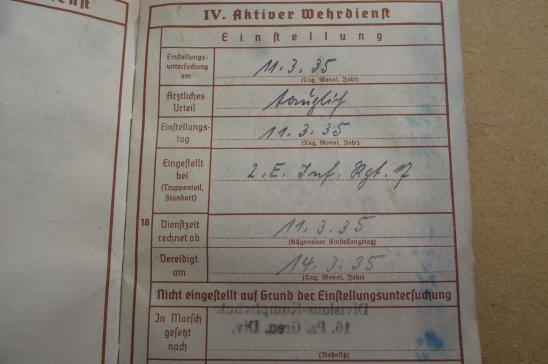 enst
IV. Aktiver Wehrdienst
Einstellung
Einstellungs-
untersuchung
am
11.3.35
(Tag, Monat, Jahr)
Ärztliches
Urteil
tauglich
Einstellungs-
tag
11.3.35
(Tag, Monat, Jahr)
Eingestellt
bei
(Truppenteil,
Standort)
2. E. Inf. Rgt. 17
18
Dienstzeit
rechnet ab
11.3.35
(Allgemeiner Einstellungstag)
Vereidigt
am
14.3.35
(Tag, Monat, Jahr)
Nicht eingestellt auf Grund der Einstellungsuntersuchung
Divisions-Kampfschule
16. Pz. Gren. Div.
In Marsch
gesetzt
nach
(Wohnsitz)